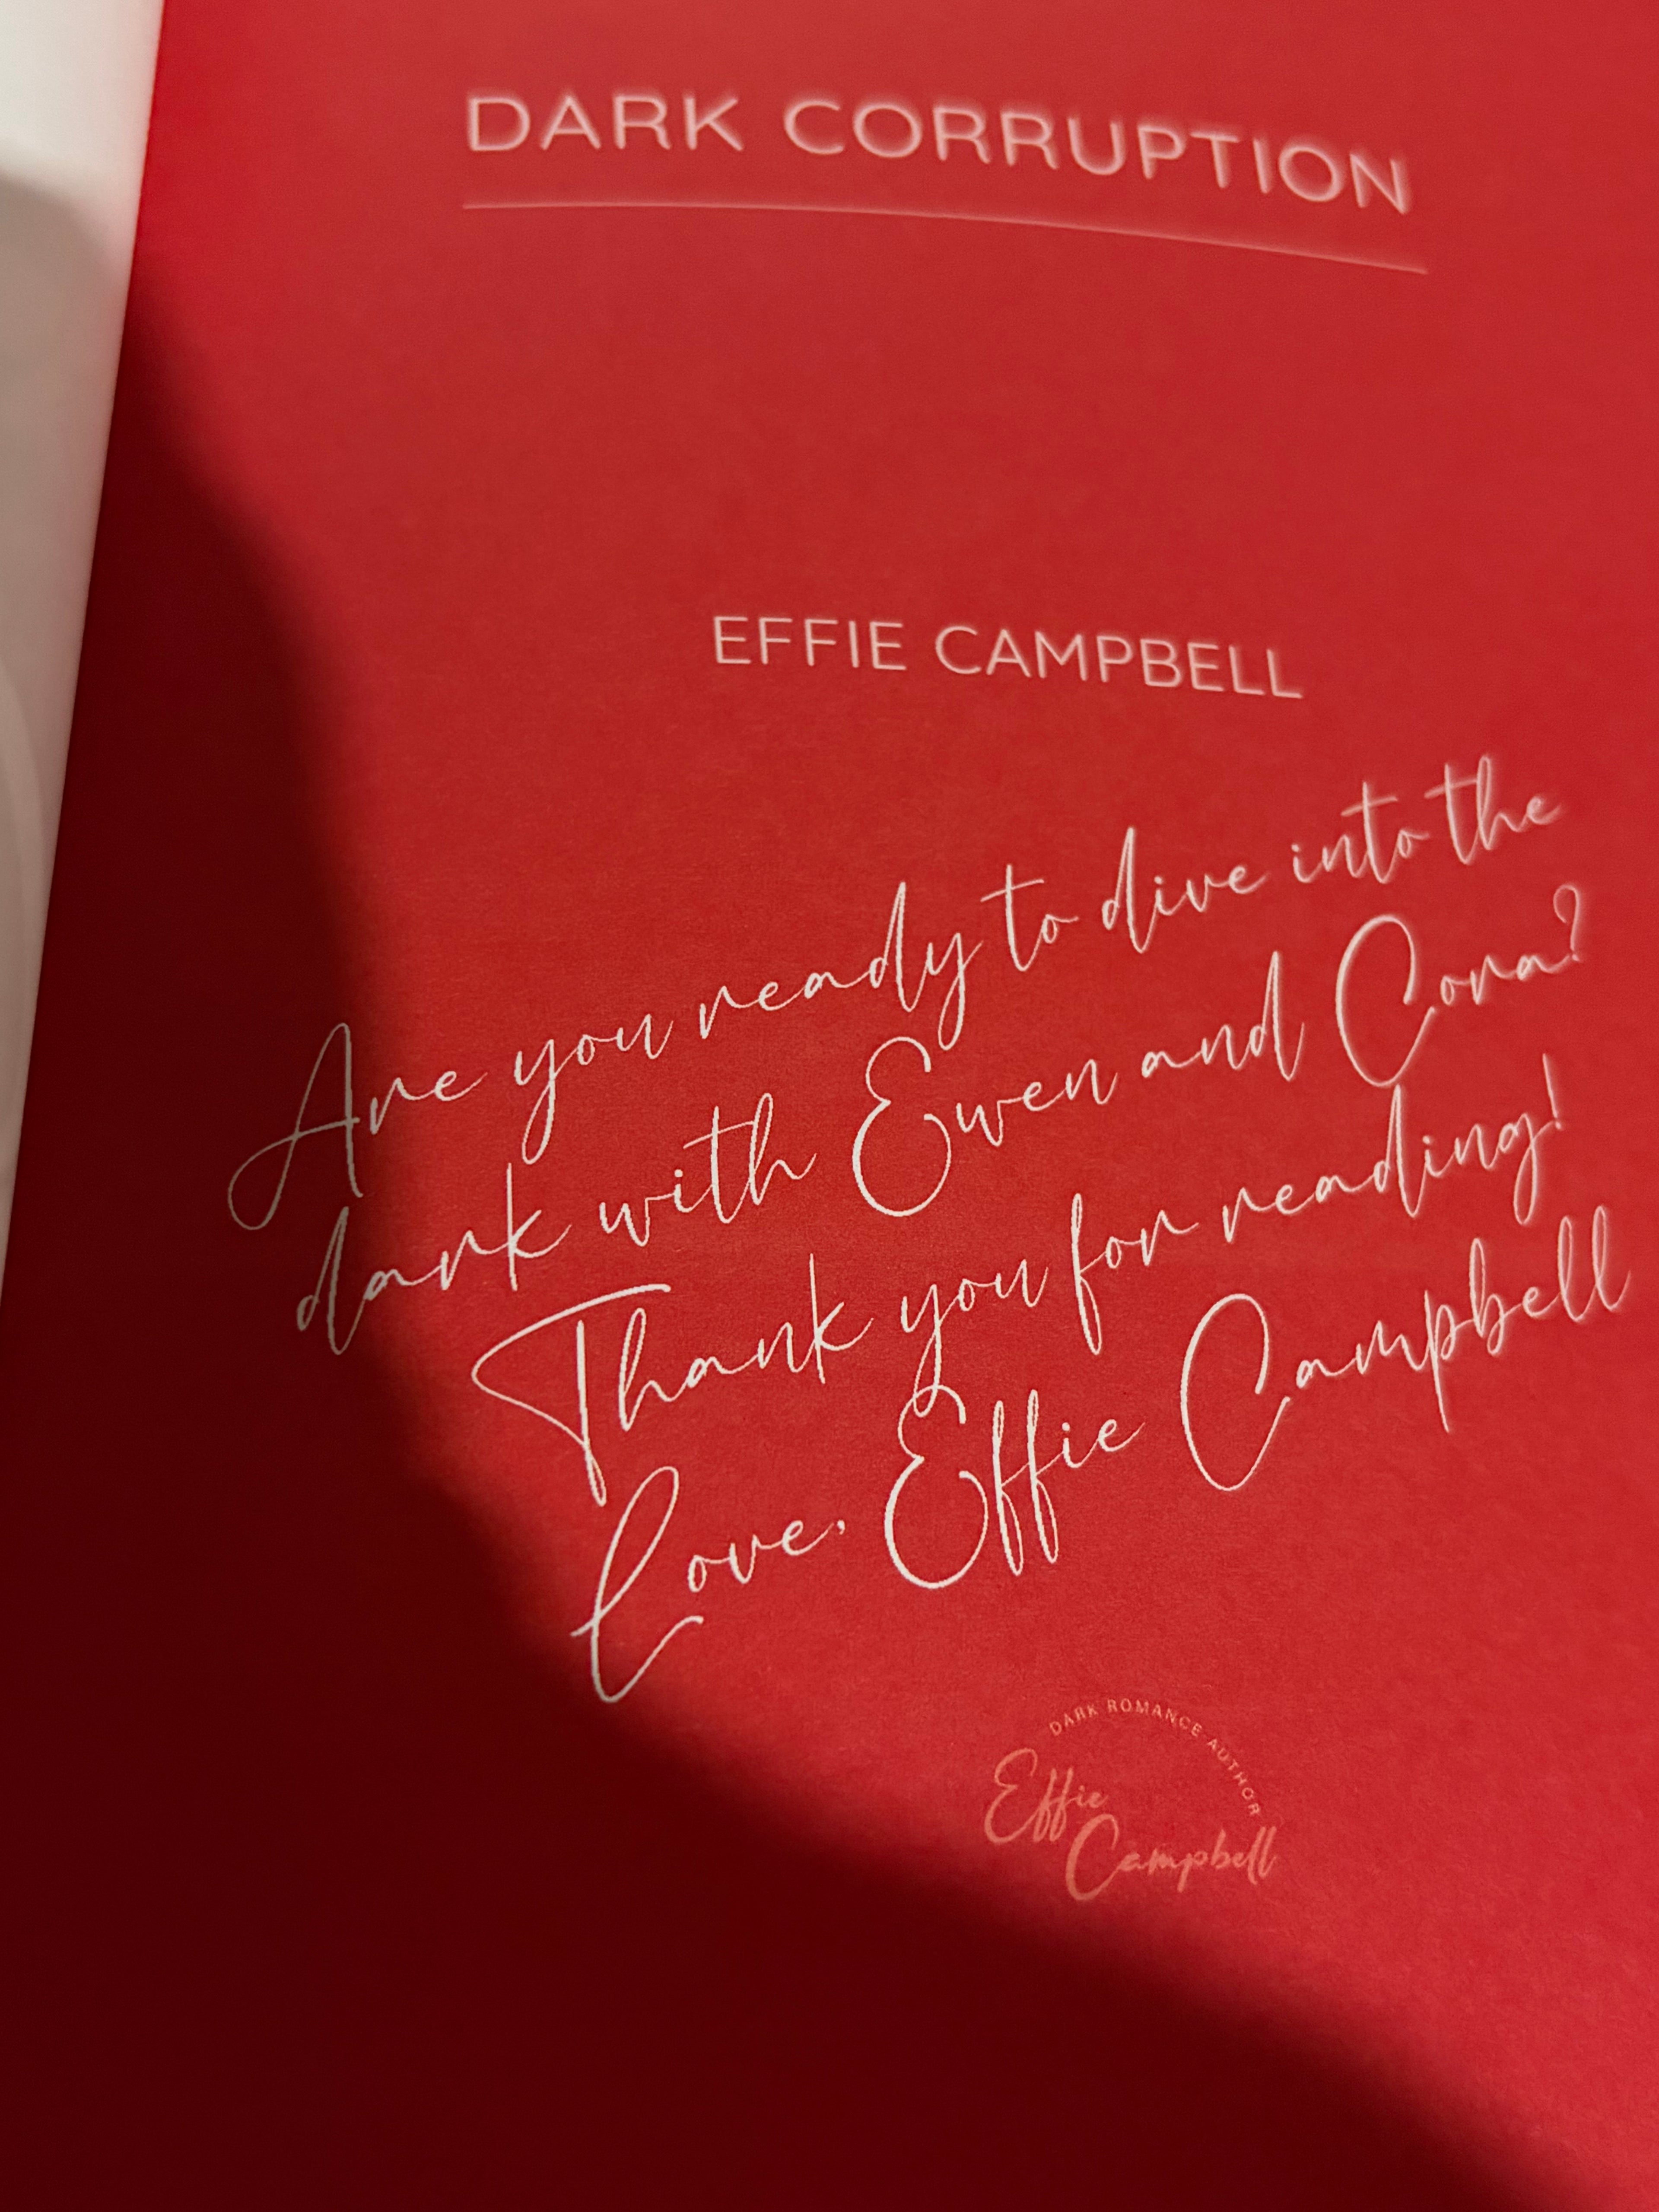 DARK CORRUPTION
EFFIE CAMPBELL
Are you ready to dive into the
dark with Ewen and Cora?
Thank you for reading!
Love, Effie Campbell
DARK ROMANCE AUTHOR
Effie
Campbell